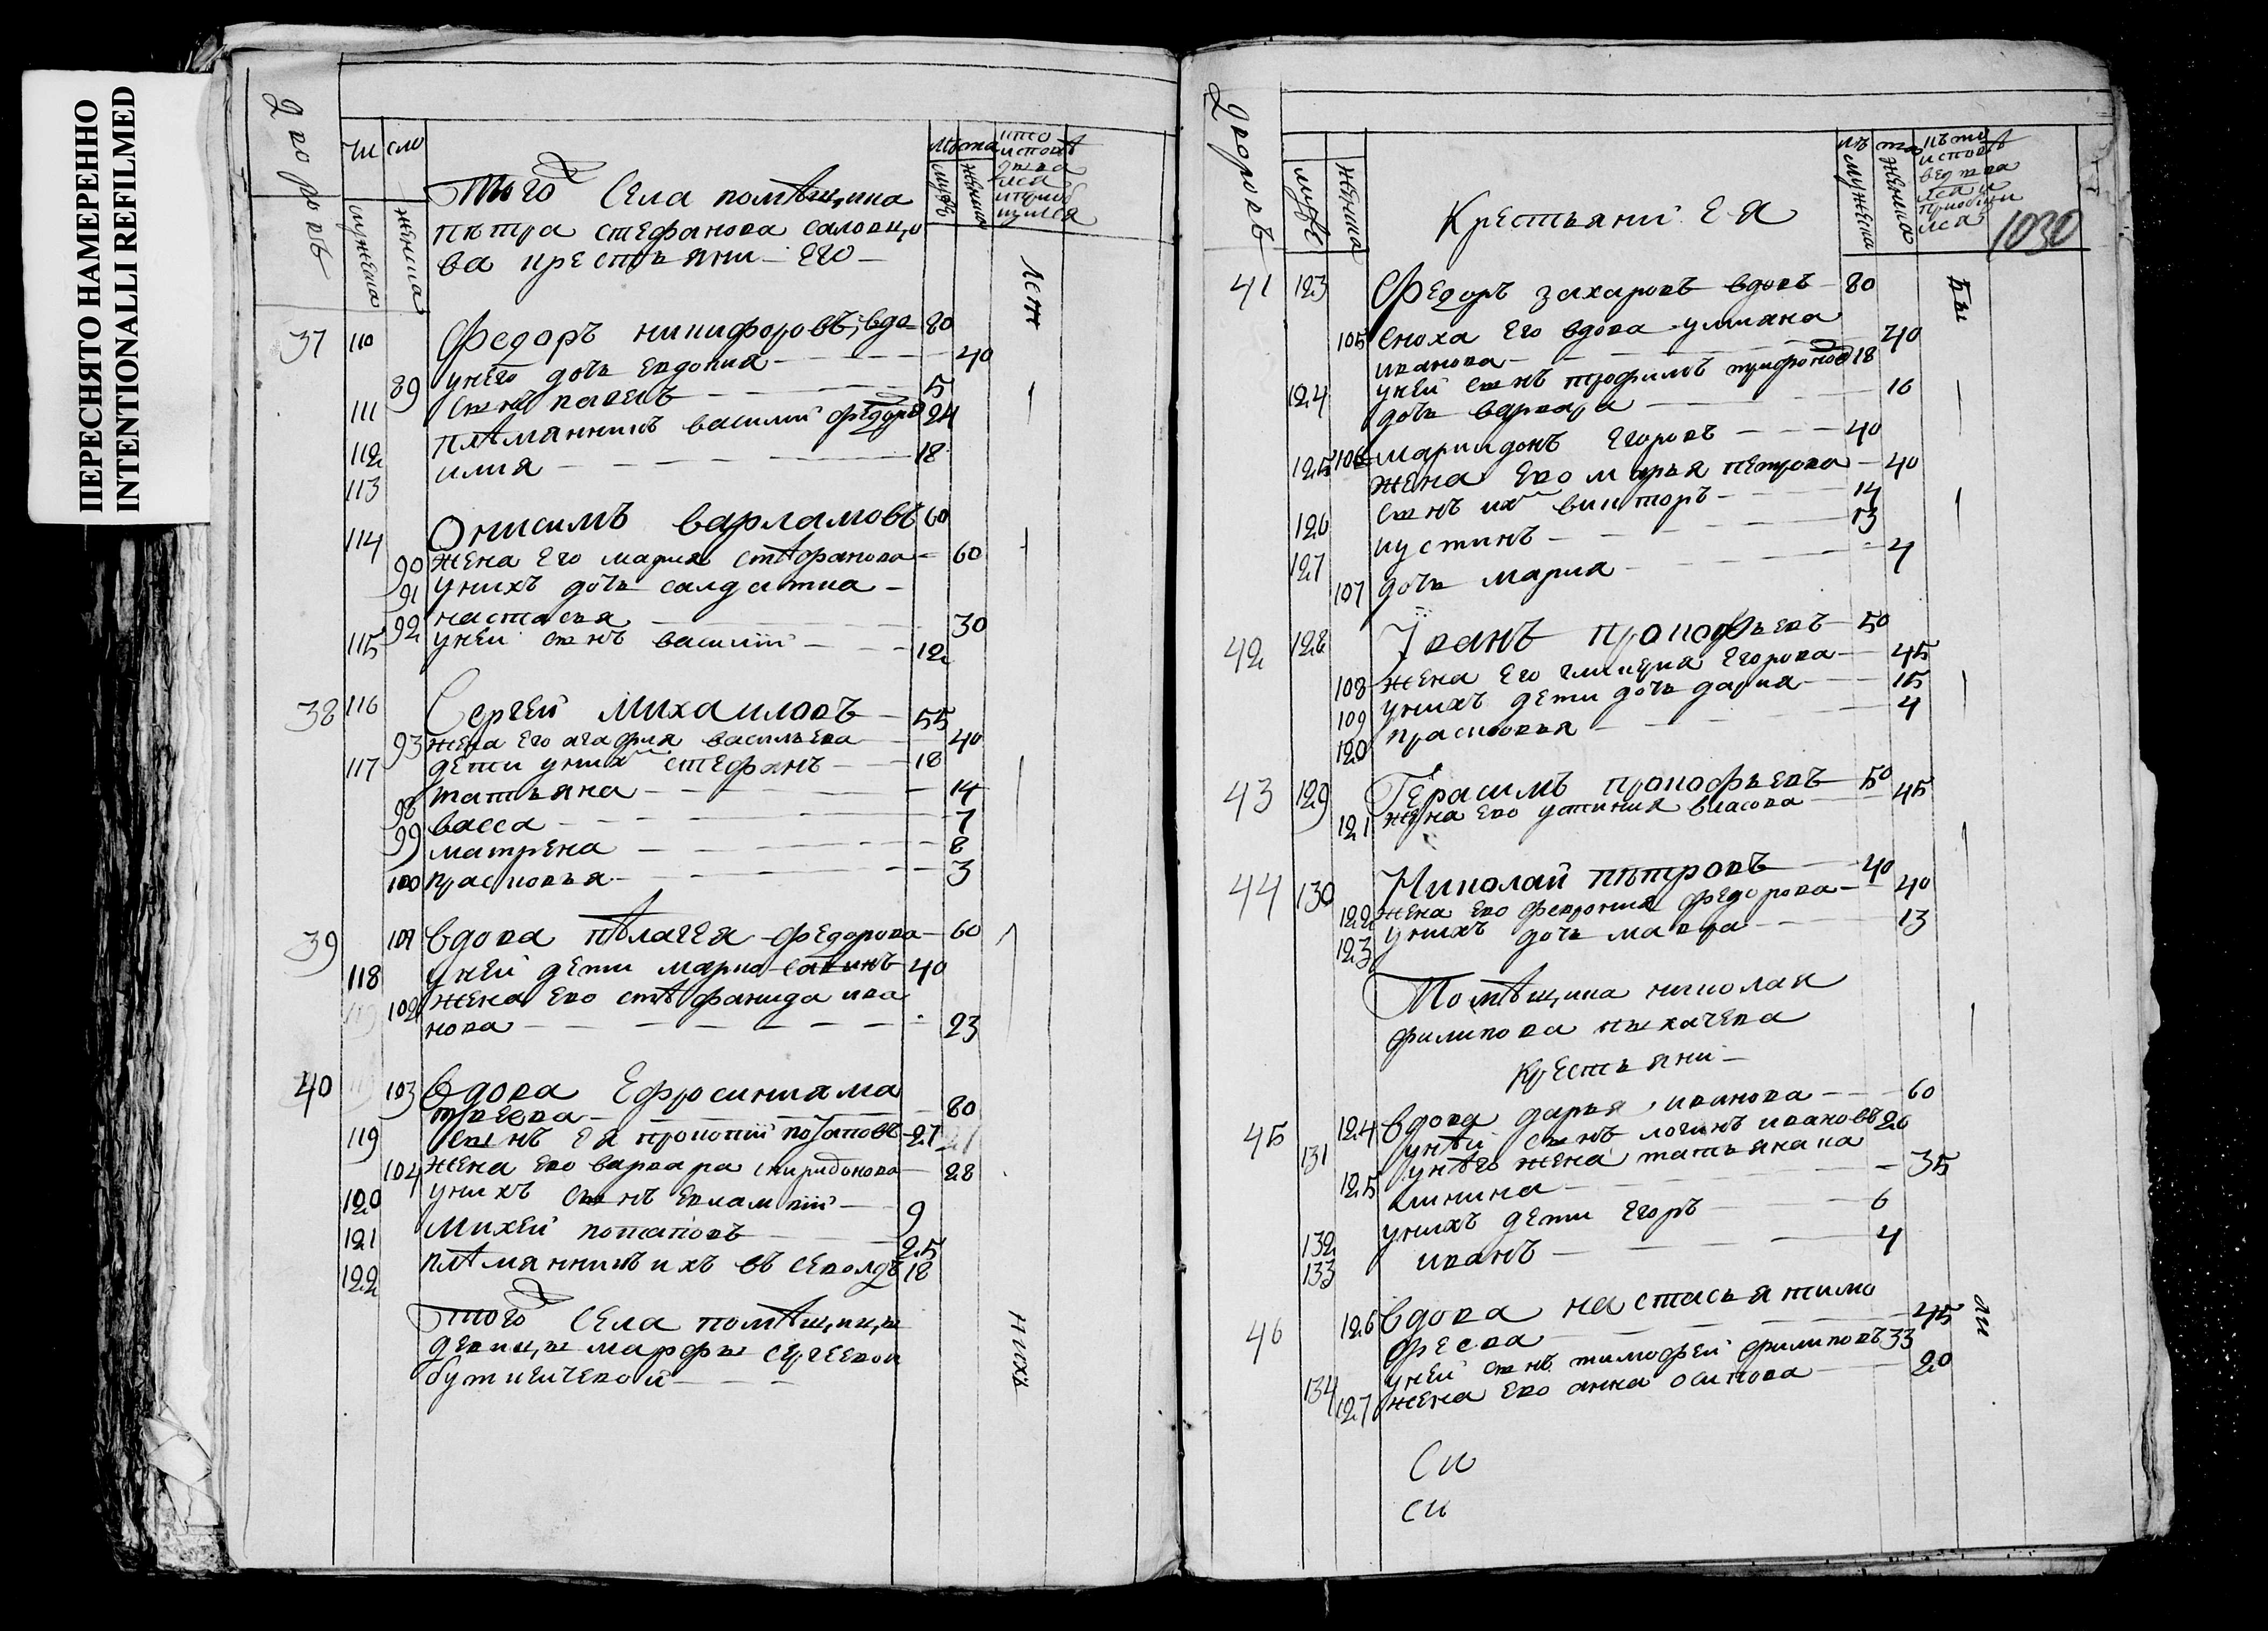 ПЕРЕСНЯТО НАМЕРЕННО
INTENTIONALLI REFILMED
Дворовъ
Чи сло
мужеска
женска
Лѣта
мужъ
женска
Того Села помѣщика
петра стефанова саловцо
ва крестьяни его
37 110 Федоръ никифоровъ, вдо 80
89 унего дочь евдокия 40
111 сынъ павелъ 5
112 плѣмянникъ василий федоров 24
113 илия 18
114 Онисимъ варламовъ 60
90 жена его мария стѣфанова 60
91 унихъ дочь салдатка
92 настасья 30
115 уней сынъ василий 12
38 116 Сергей михаиловъ 55
93 жена его агафия васильева 40
117 дети унихъ стефанъ 18
98 татьяна 14
99 васса 7
матрена 8
100 прасковья 3
39 101 вдова пѣлагея федорова 60
118 уней дети марко савинъ 40
102 жена ево стѣфанида ива
нова 23
40 103 вдова Ефросиния ма
твеева 80
119 сынъ ея прокопий потаповъ 27
104 жена ево варвара спиридонова 28
120 унихъ сынъ евлампий 9
121 михей потаповъ 25
122 плѣмянникъ ихъ всеволдъ 18
Того Села помѣщицы
девицы марфы сергеевой
буткевичевой
нихъ
Дворовъ
мужеска
женска
лѣ та
мужеска
женска
1030
Крестьяни Ея
41 123 Федоръ захаровъ вдовъ 80
105 сноха его вдова улияна
иванова 40
124 уней сынъ трофимъ трифонов 18
дочь варвара 16
125 106 маркидонъ Егоровъ 40
жена ево марья петрова 40
126 сынъ ихъ викторъ 14
127 иустинъ 13
107 дочь мария 4
42 128 Iванъ прокофьевъ 50
108 жена его гликерия Егорова 45
109 унихъ дети дочь дария 15
120 прасковья 4
43 129 Герасимъ прокофьевъ 50
121 жена ево устиния власова 45
44 130 Николай петровъ 40
122 жена ево феврония федорова 40
123 унихъ дочь мавра 13
Помѣщика николая
филипова пыхачева
Крестьяни
45 124 вдова дарья иванова 60
131 унѣй сынъ логинъ ивановъ 26
125 унѣго жена татьяна ка
линина 35
132 унихъ дети Егоръ 6
133 иванъ 4
46 126 вдова настасья тимо
феева 45
134 уней сынъ тимофей филиповъ 33
127 жена ево анна осипова 20
ли
Си
си